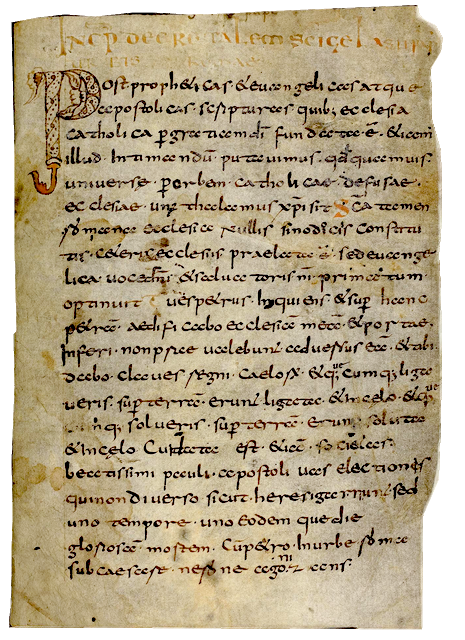 INCP DECRETALEM SCI GELASII PP
URBIS ROMAE
Post propheticas & euangelicas atque
apostolicas scripturas quib; ecclesia
catholica p gratiam dī fundata ē. & iam
illud. Intimandum putavimus. quāquam unius
universę. p orbem. catholicae defusae.
ecclesiae. un; thalamus xpi sit sca tamen
romana ecclesiae nullis sinodicis constitu
tis. ceteris ecclesiis praelata ē. sed euange
lica voce dn̄i & salvatoris nī primatum.
optinuit tu es petrus. inquiens & sup hanc
p&ram. aedificabo ecclesiam meam. & portae.
Inferi. non praevalebunt adversus eam. & tibi
dabo. claves regni. caelorum. & quecumq; liga
veris. sup terram. erunt ligata. & in celo. & quę
cumq; solveris. sup terram. erunt soluta
& in celo Cui data est. & iam. soci&as.
beatissimi pauli. apostoli vas electionis
qui non diverso sicut. heresi garriunt sed
uno tempore. uno eodemque die
gloriosam. mortem. Cū p&ro. In urbe roma
sub caesare. nerone agonizans.